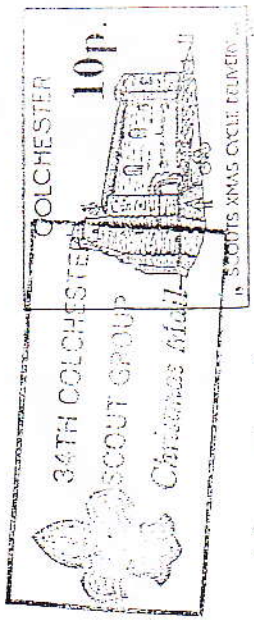 COLCHESTER
10p.
SCOUTS XMAS CYCLE DELIVERY
34TH COLCHESTER
SCOUT GROUP
Christmas Mail